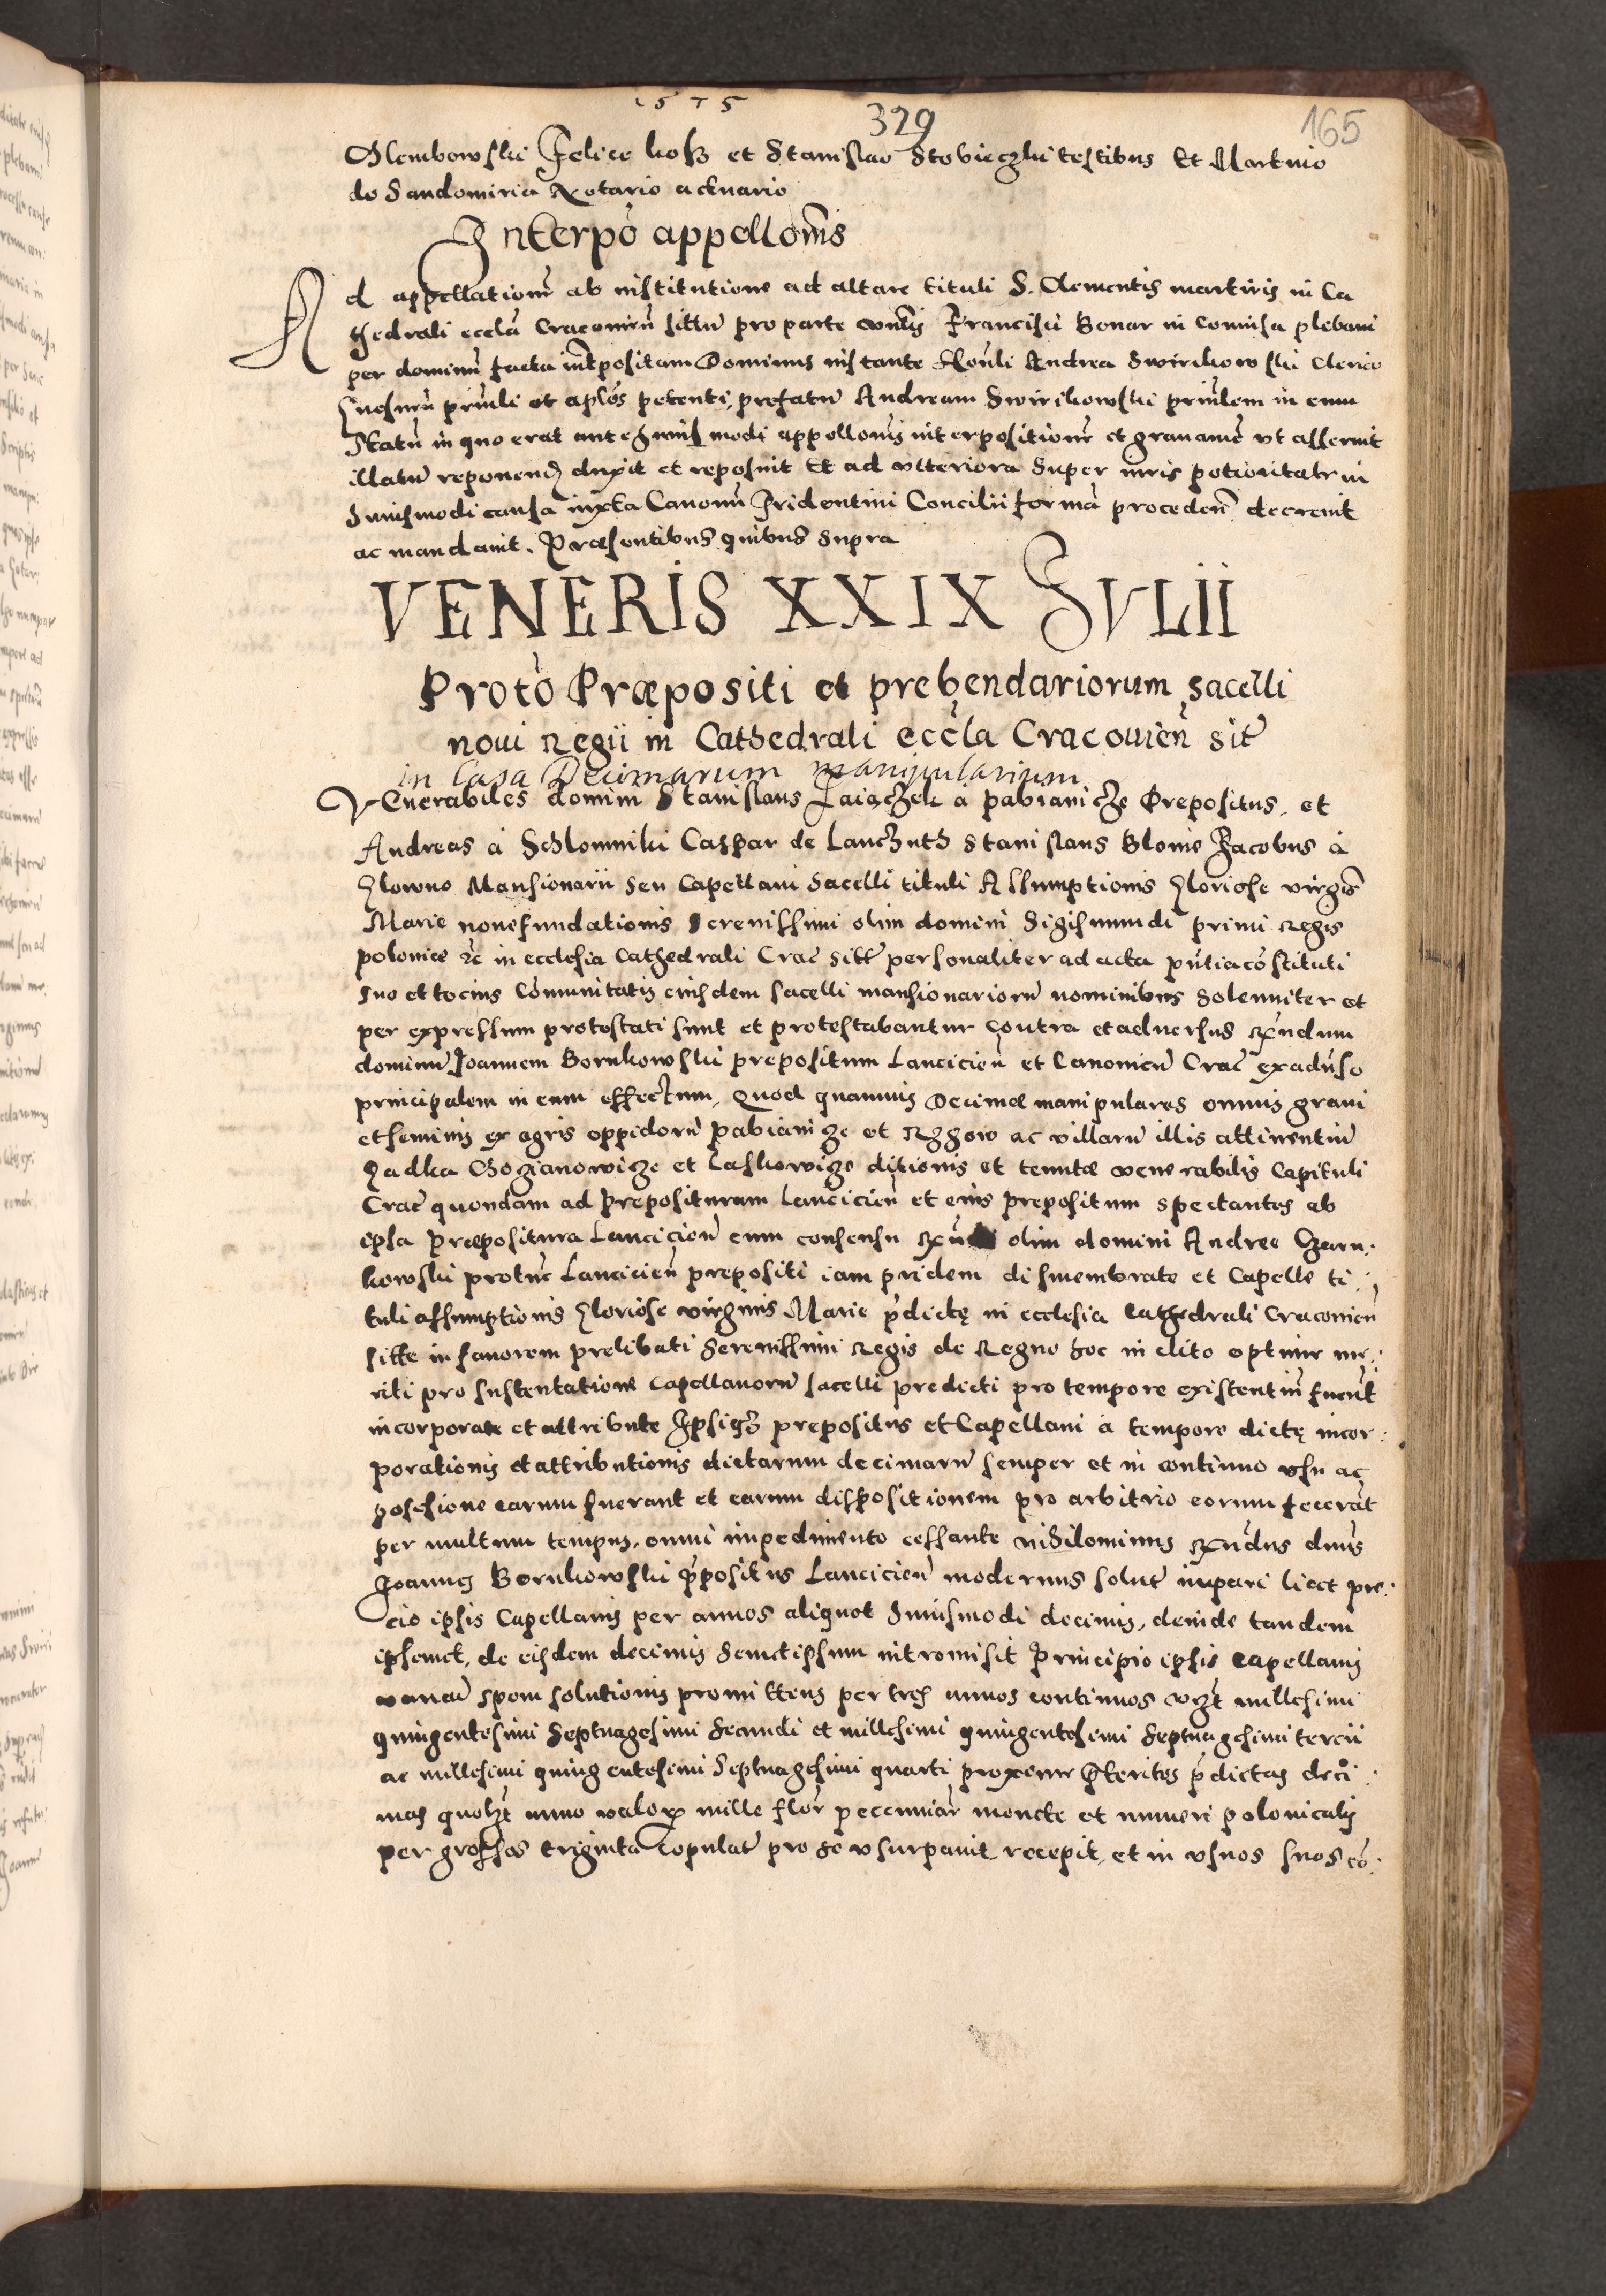 1575
329
165
Glembowski Felice koss et Stanislao Stobieczki testibus Et Martino
de Sandomiria Notario actuario
Interpo appellonis
Ad appellationem ab institutione ad altare tituli S. Clementis martiris in Ca
thedrali eccla Cracouien sittu pro parte Francisci Bonar in plebani
per dominum facta intpositam Dominus instante Andrea Swirikowski Clerico
Gnesnen prinli et aplos petenti, prefatu Andream Swirikowski prinlem in eum
Statu in quo erat ante hmoi modi appellonis interpositionem et grauame vt asseruit
illatu reponend duxit et reposuit Et ad vlteriora Super iuris potioritate in
huiusmodi causa iuxta Canonu Tridentini Concilii forma proceden decreuit
ac mandauit. Præsentibus quibus supra
VENERIS XXIX IVLII
Proto Præpositi et prebendariorum sacelli
noui Regii in Cathedrali eccla Cracouien sit
in Casa Decimarum manipularium
Venerabiles domini Stanislaus Zaiaczek a pabianicze Prepositus, et
Andreas a Schlomniki Caspar de Lanczuth Stanislaus Blonie Jacobus a
Glowno Mansionarii seu Capellani Sacelli tituli Assumptionis Gloriose virgis
Marie noue fundationis Serenissimi olim domini Sigismundi primi Regis
polonice rc in ecclesia Cathedrali Crac sitt personaliter ad acta pntia constituti
suo et tocius Comunitatis eiusdem sacelli mansionarioru nominibus Solenniter et
per expressum protestati sunt et protestabantur contra et aduersus Rndum
dominu Joannem Bornkowski prepositum Lancicien et Canonicu Crac ex aduso
principalem in eum effectum, Quod quamuis Decimæ manipulares omnis grani
et seminis ex agris oppidoru pabianicze et Rzgow ac villaru illis attinentiu
Gadka Chozianowicze et Laskowicze ditionis et tenutæ venerabilis Capituli
Crac quondam ad Preposituram Lancicien et eius prepositum spectantes ab
ipsa Præpositura Lancicien cum consensu olim domini Andree Czarn
kowski protunc Lancicien prepositi iam pridem dismembrate et Capelle ti
tuli assumptionis Gloriose virginis Marie pdictę in ecclesia Cathedrali Cracouien
sitte in fauorem prelibati Serenissimi Regis de Regno hoc inclito optime me
riti pro sustentatione Capellanoru sacelli predicti pro tempore existentiu fuerut
incorporate et attribute Ipsiq prepositus et Capellani a tempore dictę incor
porationis et attributionis dictarum decimaru semper et in continuo vsu ac
possesione earum fuerant et earum dispositionem pro arbitrio eorum fecerat
per multum tempus, omni impedimento cessante nihilominus Rndus dnus
Joannes Bornkowski ppositus Lancicien modernus solut impari licet pre
cio ipsis Capellanis per annos aliquot huiusmodi decimis, deinde tandem
ipsemet, de eisdem decimis Semetipsum intromisit Principio ipsis Capellanis
vanam spem solutionis promittens per tres annos continuos vczt millesimi
quingentesimi Septuagesimi secundi et millesimi quingentesimi septuagesimi tercii
ac millesimi quingentesimi Septuagesimi quarti proxime pteritos pdictas deci
mas quolzt anno mille flor pecuniar monete et numeri polonicalis
per grossos triginta copulat pro se vsurpauit recepit, et in vsuos suos co